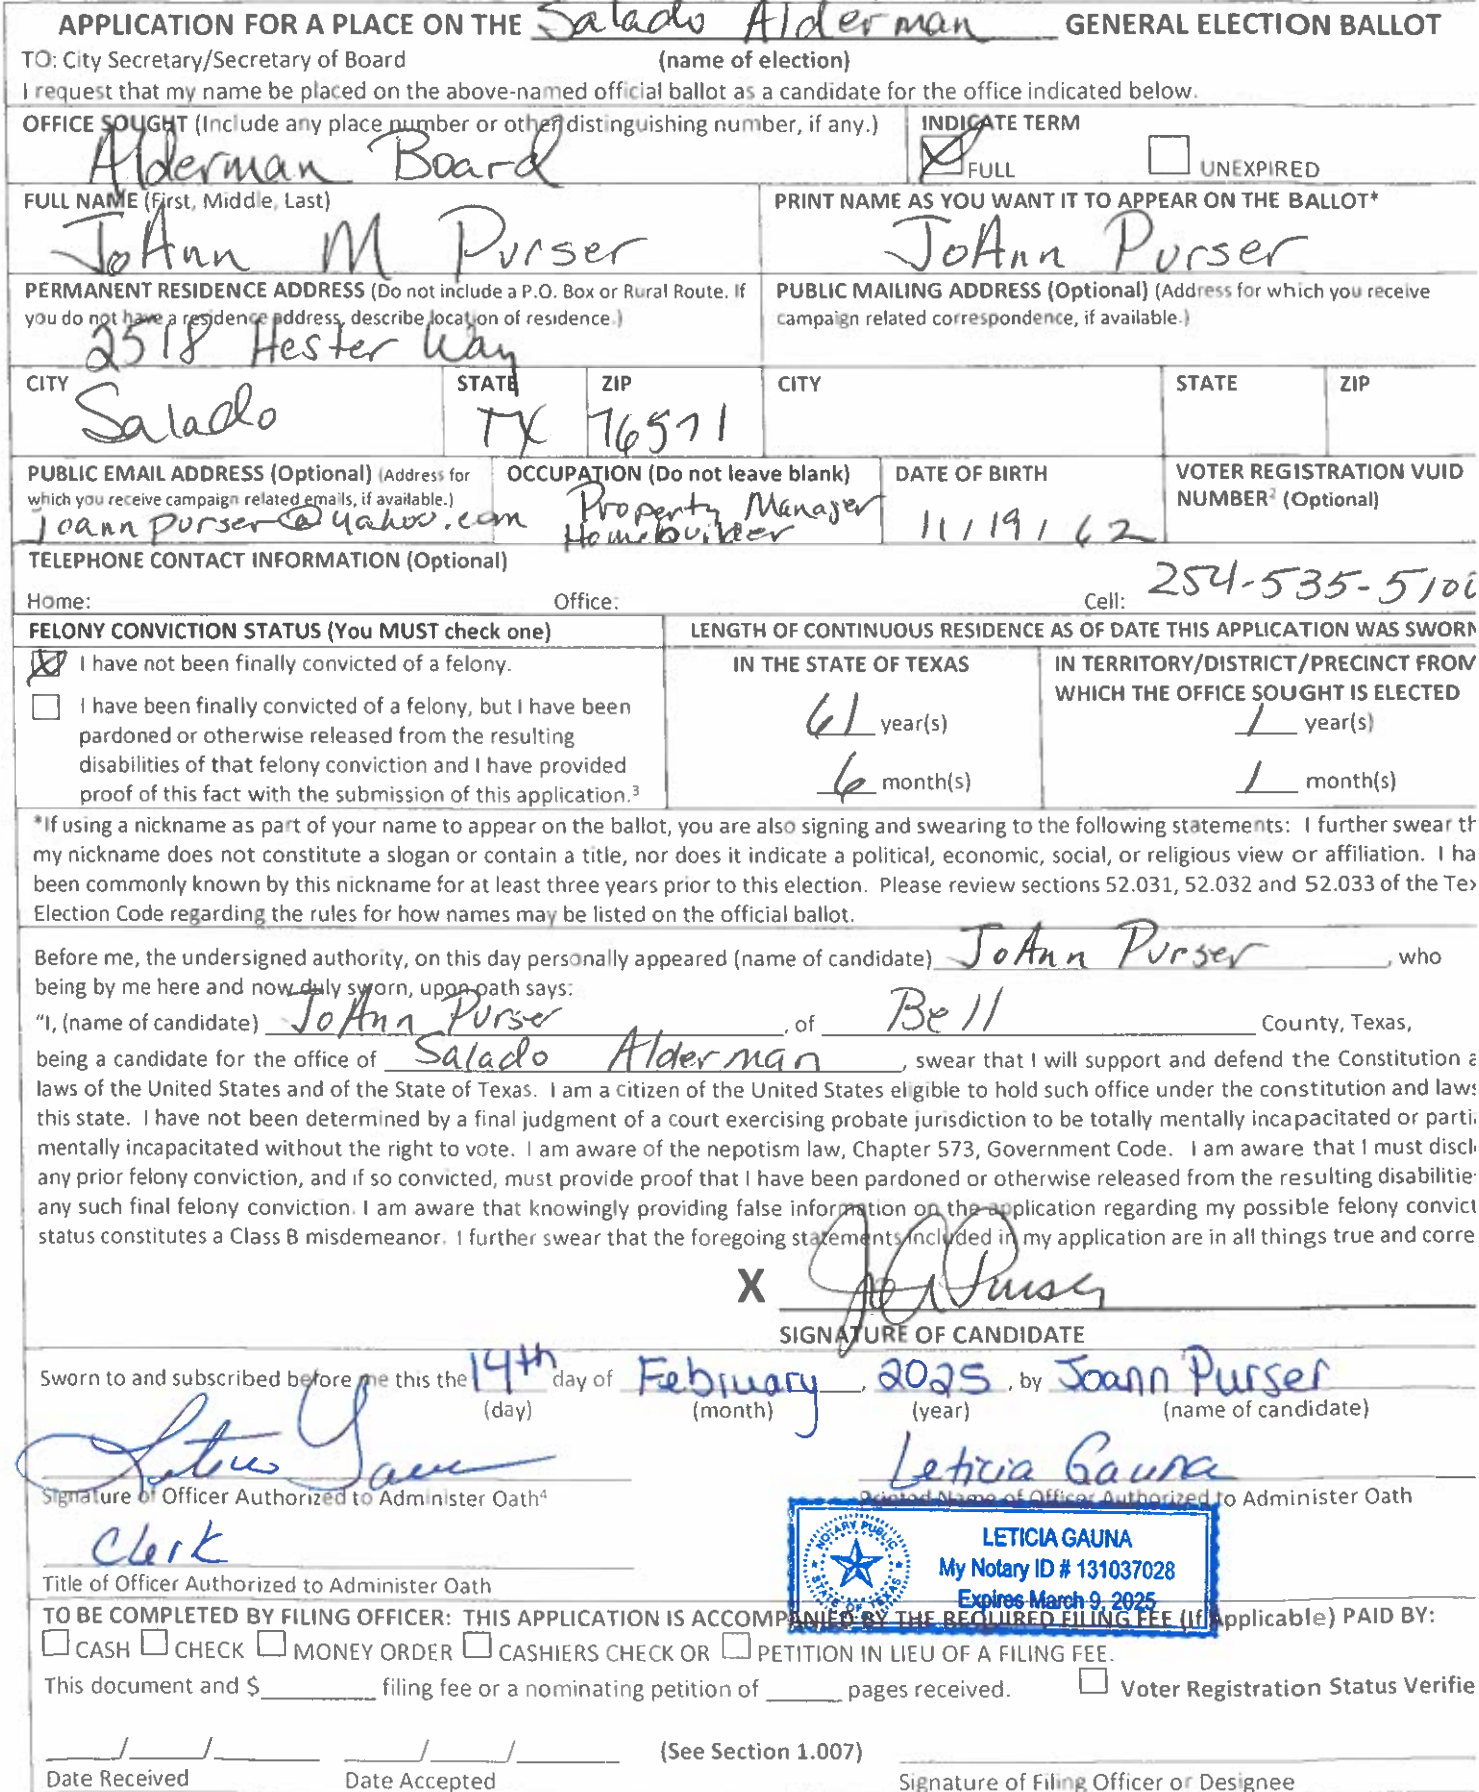 APPLICATION FOR A PLACE ON THE Salado Alderman GENERAL ELECTION BALLOT
TO: City Secretary/Secretary of Board (name of election)
I request that my name be placed on the above-named official ballot as a candidate for the office indicated below.
OFFICE SOUGHT (Include any place number or other distinguishing number, if any.) INDICATE TERM
Alderman Board FULL UNEXPIRED
FULL NAME (First, Middle, Last) PRINT NAME AS YOU WANT IT TO APPEAR ON THE BALLOT*
JoAnn M Purser JoAnn Purser
PERMANENT RESIDENCE ADDRESS (Do not include a P.O. Box or Rural Route. If PUBLIC MAILING ADDRESS (Optional) (Address for which you receive
you do not have a residence address, describe location of residence.) campaign related correspondence, if available.)
2518 Hester Way
CITY STATE ZIP CITY STATE ZIP
Salado TX 76571
PUBLIC EMAIL ADDRESS (Optional) (Address for OCCUPATION (Do not leave blank) DATE OF BIRTH VOTER REGISTRATION VUID
which you receive campaign related emails, if available.) Property Manager NUMBER² (Optional)
joannpurser@yahoo.com Homebuilder 11/19/62
TELEPHONE CONTACT INFORMATION (Optional)
Home: Office: Cell: 254-535-5100
FELONY CONVICTION STATUS (You MUST check one) LENGTH OF CONTINUOUS RESIDENCE AS OF DATE THIS APPLICATION WAS SWORN
I have not been finally convicted of a felony. IN THE STATE OF TEXAS IN TERRITORY/DISTRICT/PRECINCT FROM
WHICH THE OFFICE SOUGHT IS ELECTED
I have been finally convicted of a felony, but I have been 61 year(s) 1 year(s)
pardoned or otherwise released from the resulting
disabilities of that felony conviction and I have provided 6 month(s) 1 month(s)
proof of this fact with the submission of this application.³
*If using a nickname as part of your name to appear on the ballot, you are also signing and swearing to the following statements: I further swear th
my nickname does not constitute a slogan or contain a title, nor does it indicate a political, economic, social, or religious view or affiliation. I ha
been commonly known by this nickname for at least three years prior to this election. Please review sections 52.031, 52.032 and 52.033 of the Tex
Election Code regarding the rules for how names may be listed on the official ballot.
Before me, the undersigned authority, on this day personally appeared (name of candidate) JoAnn Purser, who
being by me here and now duly sworn, upon oath says:
"I, (name of candidate) JoAnn Purser, of Bell County, Texas,
being a candidate for the office of Salado Alderman, swear that I will support and defend the Constitution a
laws of the United States and of the State of Texas. I am a citizen of the United States eligible to hold such office under the constitution and laws
this state. I have not been determined by a final judgment of a court exercising probate jurisdiction to be totally mentally incapacitated or parti
mentally incapacitated without the right to vote. I am aware of the nepotism law, Chapter 573, Government Code. I am aware that I must discl
any prior felony conviction, and if so convicted, must provide proof that I have been pardoned or otherwise released from the resulting disabilitie
any such final felony conviction. I am aware that knowingly providing false information on the application regarding my possible felony convict
status constitutes a Class B misdemeanor. I further swear that the foregoing statements included in my application are in all things true and corre
X JoA Purser
SIGNATURE OF CANDIDATE
Sworn to and subscribed before me this the 14th day of February, 2025, by Joann Purser
(day) (month) (year) (name of candidate)
Leticia Gauna
Signature of Officer Authorized to Administer Oath⁴ Printed Name of Officer Authorized to Administer Oath
Clerk
Title of Officer Authorized to Administer Oath
NOTARY PUBLIC
STATE OF TEXAS
LETICIA GAUNA
My Notary ID # 131037028
Expires March 9, 2025
TO BE COMPLETED BY FILING OFFICER: THIS APPLICATION IS ACCOMPANIED BY THE REQUIRED FILING FEE (If Applicable) PAID BY:
CASH CHECK MONEY ORDER CASHIERS CHECK OR PETITION IN LIEU OF A FILING FEE.
This document and $ filing fee or a nominating petition of pages received. Voter Registration Status Verifie
/ / / / (See Section 1.007)
Date Received Date Accepted Signature of Filing Officer or Designee